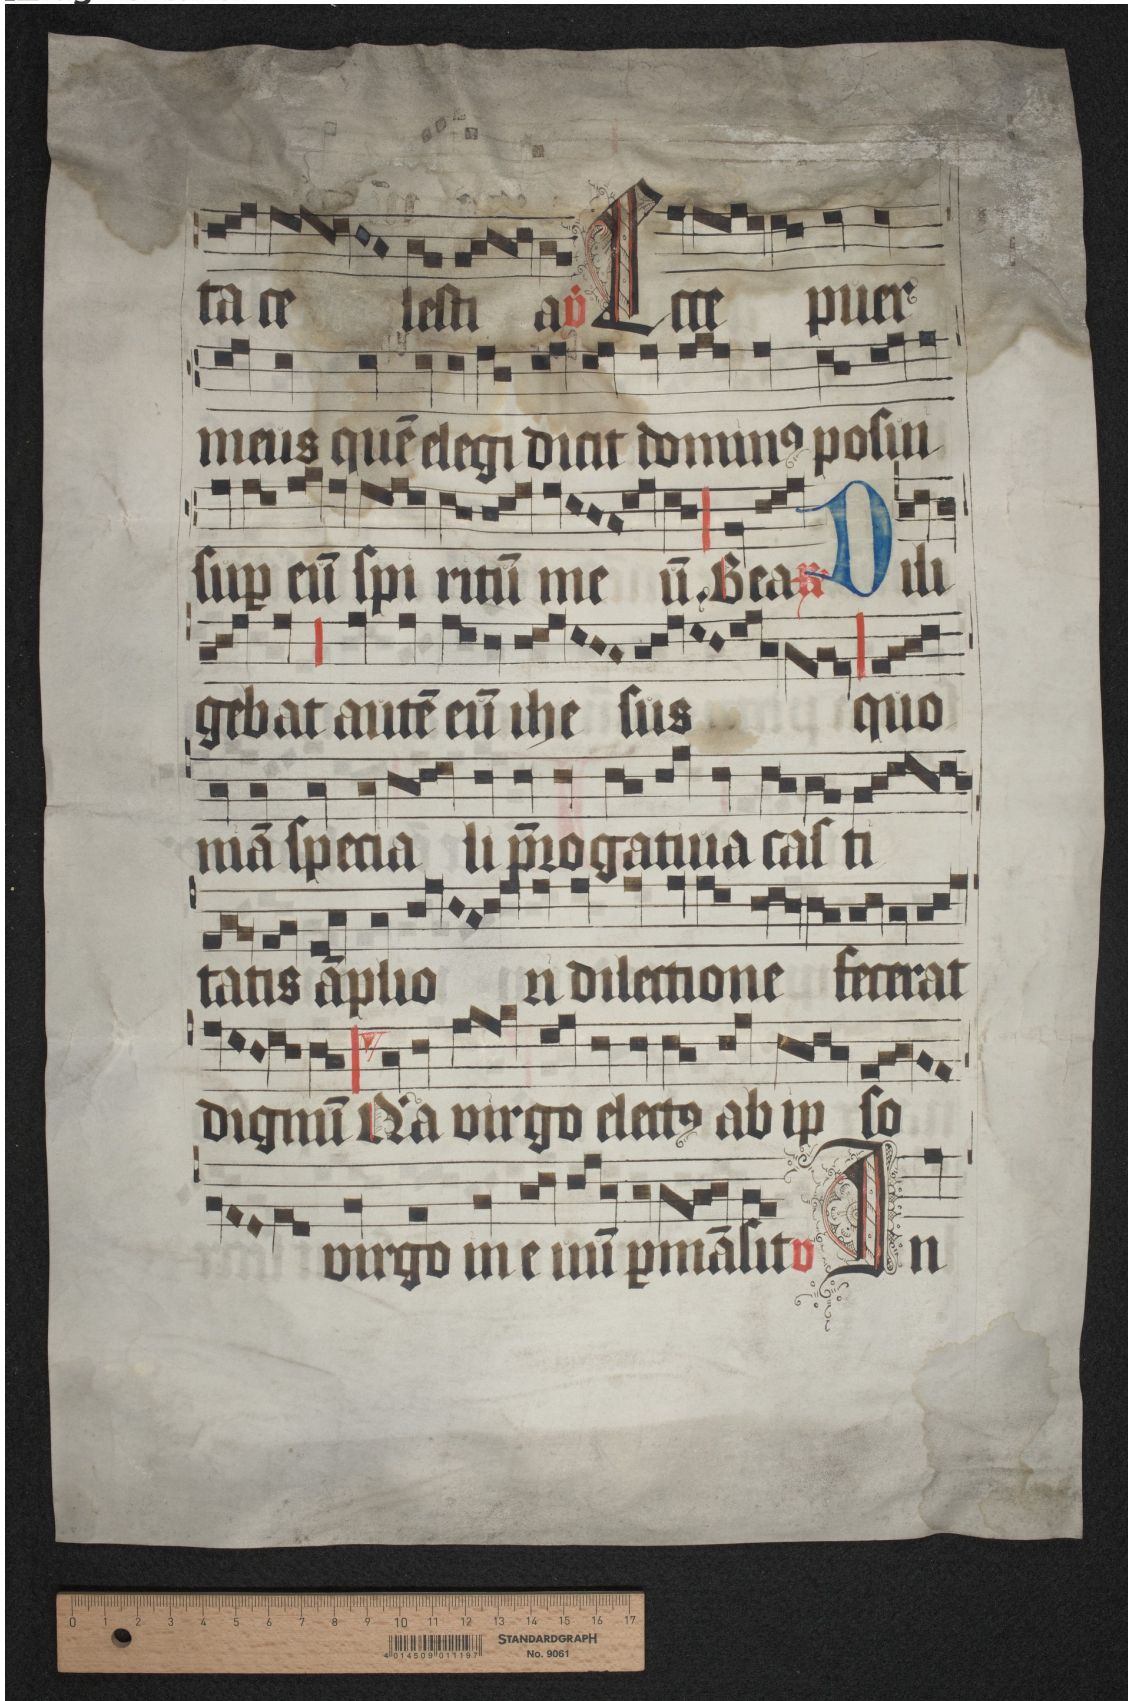 ta ce lesti a v̇ Ecce puer
meus quē elegi dicit dominꝰ posui
sup eū spi ritū me ū. Bea R Dili
gebat autē eū ihe sus quo
niā specia li p̄rogatiua cas ti
tatis āplio ri dilectione fecerat
dignū V Na virgo electꝰ ab ip so
virgo in e uū ꝑmāsit v In
0 1 2 3 4 5 6 7 8 9 10 11 12 13 14 15 16 17
STANDARDGRAPH
4 014509 011197 No. 9061